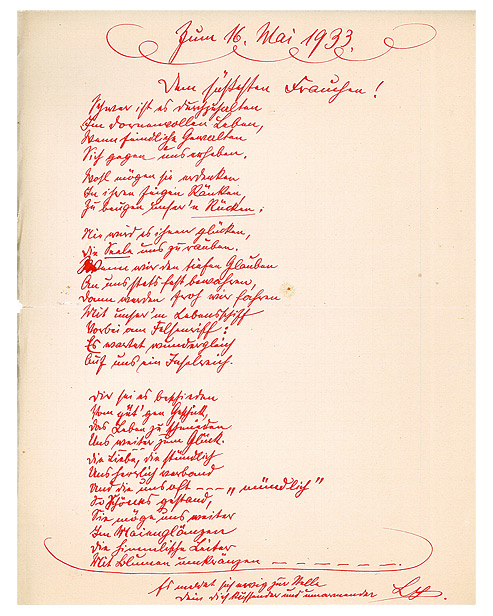 Zum 16. Mai 1933.
Dem süßesten Frauchen!
Schwer ist es durchzuhalten
Im dornenvollen Leben,
Wenn feindliche Gewalten
Sich gegen uns erheben.
Wohl mögen sie erdenken
In ihren feigen Ränken
Zu beugen unser'n Rücken;
Nie wird es ihnen glücken,
Die Seele uns zu rauben.
Wenn wir den tiefen Glauben
An uns stets fest bewahren,
Dann werden froh wir fahren
Mit unser'm Lebensschiff
Vorbei am Felsenriff:
Es wartet wundergleich
Auf uns ein Inselreich.
Dir sei es beschieden
Vom güt'gen Geschick,
Das Leben zu schmieden
Uns weiter zum Glück.
Die Liebe, die stündlich
Uns herrlich verband
Und die uns oft - - - „mündlich"
So Schönes gestand,
Sie möge uns weiter
Im Maienglänzen
Die himmlische Leiter
Mit Blumen umkränzen - - - - - -
Es meldet sich ewig zur Stelle
Dein Dich küssender und umarmender